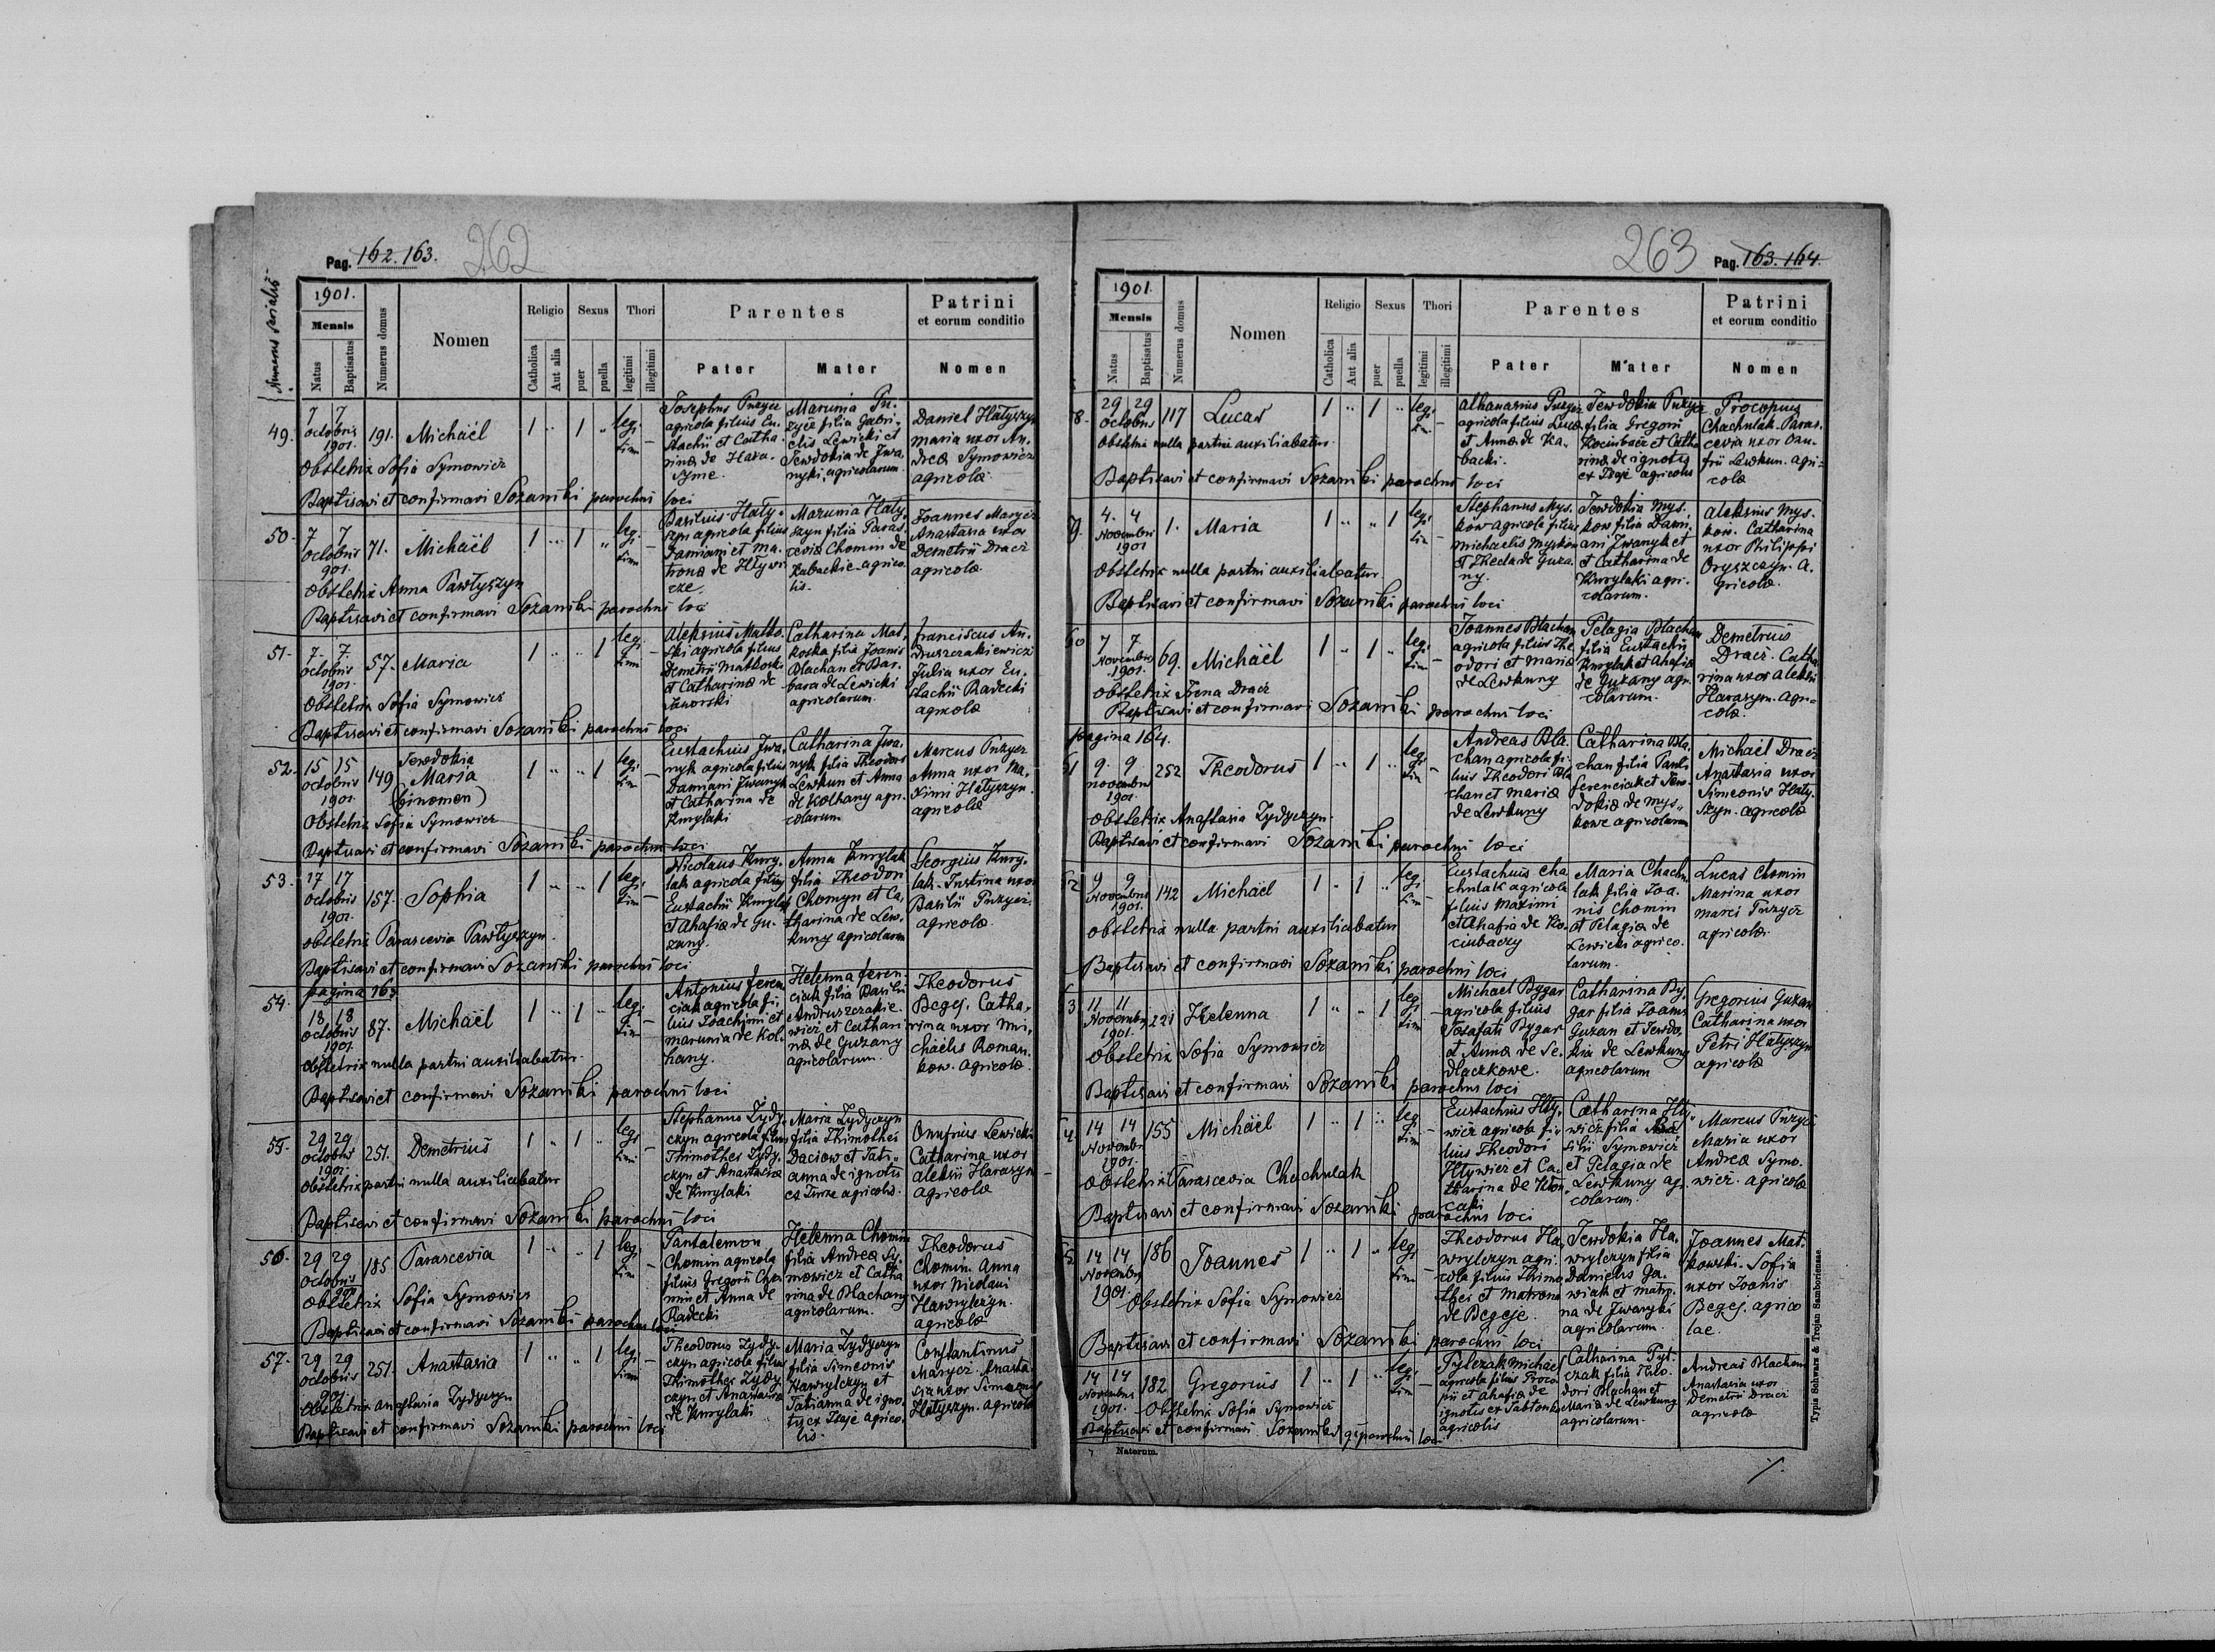 Pag. 162. 163. 262
Numerus serialis
1901.
Mensis
Natus
Baptisatus
Numerus domus
Nomen
Religio
Catholica
Aut alia
Sexus
puer
puella
Thori
legitimi
illegitimi
Parentes
Pater
Mater
Patrini
et eorum conditio
Nomen
49.
7 7
octobris
1901.
191.
Michaël
1 " 1 "
legi
tim
Josephus Puzycz
agricola filius Eu-
stachii et Catha-
rina de Hara-
syme.
Marunia Pu-
zycz filia Gabri-
elis Lewicki et
Jewdokia de Jwa-
nyki, agricolarum.
Daniel Hatyszyn
maria uxor An-
dreæ Symowicz
agricolæ
Obstetrix Sofia Symowicz
Baptisavi et confirmavi Sozański parochus loci
50.
7 7
Octobris
901.
71.
Michaël
1 " 1 "
legi
tim
Basilius Haty-
szyn agricola filius
Damiani et Ma-
trona de Hlywi-
cze.
Marunia Haty-
szyn filia Paras-
cevia Chomin de
Kubackie agrico-
lis.
Joannes Marycz
Anastasia uxor
Demetrii Dracz
agricolæ
Obstetrix Anna Pawłyszyn
Baptisavi et confirmavi Sozański parochus loci
51.
7. 7.
octobris
1901.
57.
Maria
1 " " 1
legi
tim
Aleksius Matko-
ski agricola filius
Demetrii Matkoski
et Catharina de
Jaworski
Catharina Mat-
koska filia Joanis
Blachan et Bar-
bara de Lewicki
agricolarum.
franciscus An-
druszczakiewicz
Julia uxor Eu-
stachii Radecki
agricolæ
Obstetrix Sofia Symowicz
Baptisavi et confirmavi Sozański parochus loci
52.
15 15
octobris
1901.
149
Jewdokia
Maria
(binomen)
1 " " 1
legi
tim
Eustachius Jwa-
nyk agricola filius
Damiani Jwanyk
et Catharina de
Kurylaki
Catharina Jwa-
nyk filia Theodori
Lewkun et Anna
de Kolhany agri-
colarum
Marcus Puzycz
Anna uxor Ma-
ximi Hatyszyn.
agricolæ
Obstetrix Sofia Symowicz
Baptisavi et confirmavi Sozański parochus loci
53.
17 17
octobris
1901.
157.
Sophia
1 " " 1
legi
tim
Nicolaus Kury-
lak agricola filius
Eustachii Kurylak
et Ahafia de Gu-
zany.
Anna Kurylak
filia Theodori
Chomyn et Ca-
tharina de Lew-
kuny agricolarum
Georgius Kury-
lak. Justina uxor
Basilii Puzycz.
agricolæ
obstetrix Parascevia Pawłyszyn.
Baptisavi et confirmavi Sozański parochus loci
54.
pagina 163
18 18
octobris
1901.
87.
Michaël
1 " 1 "
legi
tim
Antonius feren-
ciak agricola fi-
lius Joachimi et
marunia de Kol-
hany.
Helenna feren-
ciak filia Basilii
Andruszczakie-
wicz et Cathari-
na de Guzany
agricolarum.
Theodorus
Begej. Catha-
rina uxor mi-
chaëlis Roman-
kow. agricolæ
Obstetrix nulla partui auxiliabatur
Baptisavi et confirmavi Sozański parochus loci
55.
29 29
octobris
1901.
251.
Demetrius
1 " 1 "
legi
tim
Stephanus Zydy-
czyn agricola filius
Thimothei Zydy-
czyn et Anastasia
de Kurylaki
Maria Zydyczyn
filia Thimothei
Daciow et Tati-
anna de ignotis
ex Turze agricolis.
Onufrius Lewicki
Catharina uxor
Aleksii Harasym
agricolæ
Obstetrix partui nulla auxiliabatur
Baptisavi et confirmavi Sozański parochus loci
56.
29 29
octobris
901
185
Parascevia
1 " " 1
legi
tim
Pantalemon
Chomin agricola
filius Gregorii Cho-
min et Anna de
Radecki
Helenna Chomin
filia Andreæ Sy-
mowicz et Catha-
rina de Blachany
agricolarum.
Theodorus
Chomin. Anna
uxor Nicolaui
Hawrylczyn.
agricolæ
Obstetrix Sofia Symowicz
Baptisavi et confirmavi Sozański parochus loci
57.
29 29
octobris
901.
251.
Anastasia
1 " " 1
legi
tim
Theodorus Zydy-
czyn agricola filius
Thimothei Zydy-
czyn et Anastasia
de Kurylaki
Maria Zydyczyn
filia Simeonis
Hawrylczyn et
Tatianna de igno-
tis ex Isaje agrico-
lis.
Constantinus
Marycz. Anasta-
sia uxor Simeonis
Hatyszyn. agricolæ
Obstetrix anastasia Zydyczyn
Baptisavi et confirmavi Sozański parochus loci
263 Pag. 163. 164.
1901.
Mensis
Natus
Baptisatus
Numerus domus
Nomen
Religio
Catholica
Aut alia
Sexus
puer
puella
Thori
legitimi
illegitimi
Parentes
Pater
Mater
Patrini
et eorum conditio
Nomen
8.
29 29
octobris
117
Lucas
1 " 1 "
legi
tim
Athanasius Puzycz
agricola filius Lucæ
et Anna de Ka-
backi.
Jewdokia Puzycz
filia Gregorii
Kocinbacz et Catha-
rina de ignotis
ex Isaje agricolis
Procopius
Chachulak. Paras-
cevia uxor Onu-
frii Lewkun. agri-
colæ
Obstetrix nulla partui auxiliabatur.
Baptisavi et confirmavi Sozański parochus loci
9.
4. 4
Novembris
1901
1.
Maria
1 " " 1
legi
tim
Stephanus Mys-
kow agricola filius
Michaelis Myskow
et Thecla de Guza-
ny.
Jewdokia Mys-
kow filia Dami-
ani Jwanyk et
et Catharina de
Kurylaki agri-
colarum.
Aleksius Mys-
kow. Catharina
uxor Philippi
Oryszczyn. a-
gricolæ.
Obstetrix nulla partui auxiliabatur.
Baptisavi et confirmavi Sozański parochus loci
60
7 7
Novembris
1901.
69.
Michaël
1 " 1 "
legi
tim
Joannes Blachan
agricola filius The-
odori et maria
de Lewkuny
Pelagia Blachan
filia Eustachii
Kurylak et Ahafia
de Guzany agri-
colarum.
Demetrius
Dracz. Catha-
rina uxor Aleksii
Harasym. agri-
colæ.
Obstetrix Irena Dracz
Baptisavi et confirmavi Sozański parochus loci
pagina 164.
61
9. 9.
novembris
1901.
252
Theodorus
1 " 1 "
legi
tim
Andreas Bla-
chan agricola fi-
lius Theodori Bla-
chan et maria
de Lewkuny
Catharina Bla-
chan filia Pauli
ferenciak et Jew-
dokia de mys-
kowe agricolarum
Michaël Dracz
Anastasia uxor
Simeonis Haty-
szyn. agricolæ
Obstetrix Anastasia Zydyczyn.
Baptisavi et confirmavi Sozański parochus loci
62
9 9
Novembris
1901.
142
Michaël
1 " 1 "
legi
tim
Eustachius Cha-
chulak agricola
filius Maximi
et Ahafia de Ko-
ciubaczy
Maria Chachu-
lak filia Joa-
nis Chomin
et Pelagia de
Lewicki agrico-
larum.
Lucas Chomin
Marina uxor
marci Puzycz
agricolæ.
obstetrix nulla partui auxiliabatur
Baptisavi et confirmavi Sozański parochus loci
3
11 11
Novembris
1901.
221
Helenna
1 " " 1
legi
tim
Michael Bygar
agricola filius
Jozafati Bygar
et Anna de Se-
dlaczkowe.
Catharina By-
gar filia Joanis
Guzan et Jewdo-
kia de Lewkuny
agricolarum
Gregorius Guzan
Catharina uxor
Petri Hatyszyn
agricolæ
Obstetrix Sofia Symowicz
Baptisavi et confirmavi Sozański parochus loci
4
14 14
Novembris
1901.
155
Michaël
1 " 1 "
legi
tim
Eustachius Hly-
wicz agricola fi-
lius Theodori
Hlywicz et Ca-
tharina de Kon-
caki
Catharina Hly-
wicz filia Ba-
silii Symowicz
et Pelagia de
Lewkuny agri-
colarum.
Marcus Puzycz
Maria uxor
Andreæ Symo-
wicz. agricolæ
Obstetrix Parascevia Chachulak
Baptisavi et confirmavi Sozański parochus loci
5
14 14
Novembris
1901.
186
Joannes
1 " 1 "
legi
tim
Theodorus Ha-
wrylczyn agri-
cola filius Thimo-
thei et matrona
de Begeje.
Jewdokia Ha-
wrylczyn filia
Danielis Ga-
wiak et matro-
na de Jwanyki
agricolarum.
Joannes Mat-
kowski. Sofia
uxor Joanis
Begej. agrico-
lae.
Obstetrix Sofia Symowicz
Baptisavi et confirmavi Sozański parochus loci
14 14
Novembris
1901.
182
Gregorius
1 " 1 "
legi
tim
Pylczak Michaël
agricola filius Proco-
pii et ahafia de
ignotis ex Jabłonka
agricolis
Catharina Pyl-
czak filia Theo-
dori Blachan et
Maria de Lewkuny
agricolarum.
Andreas Blachan
Anastasia uxor
Demetrii Dracz
agricolæ
Obstetrix Sofia Symowicz
Baptisavi et confirmavi Sozański parochus loci
Natorum.
Typis Schwarz & Trojan Samboriensae.